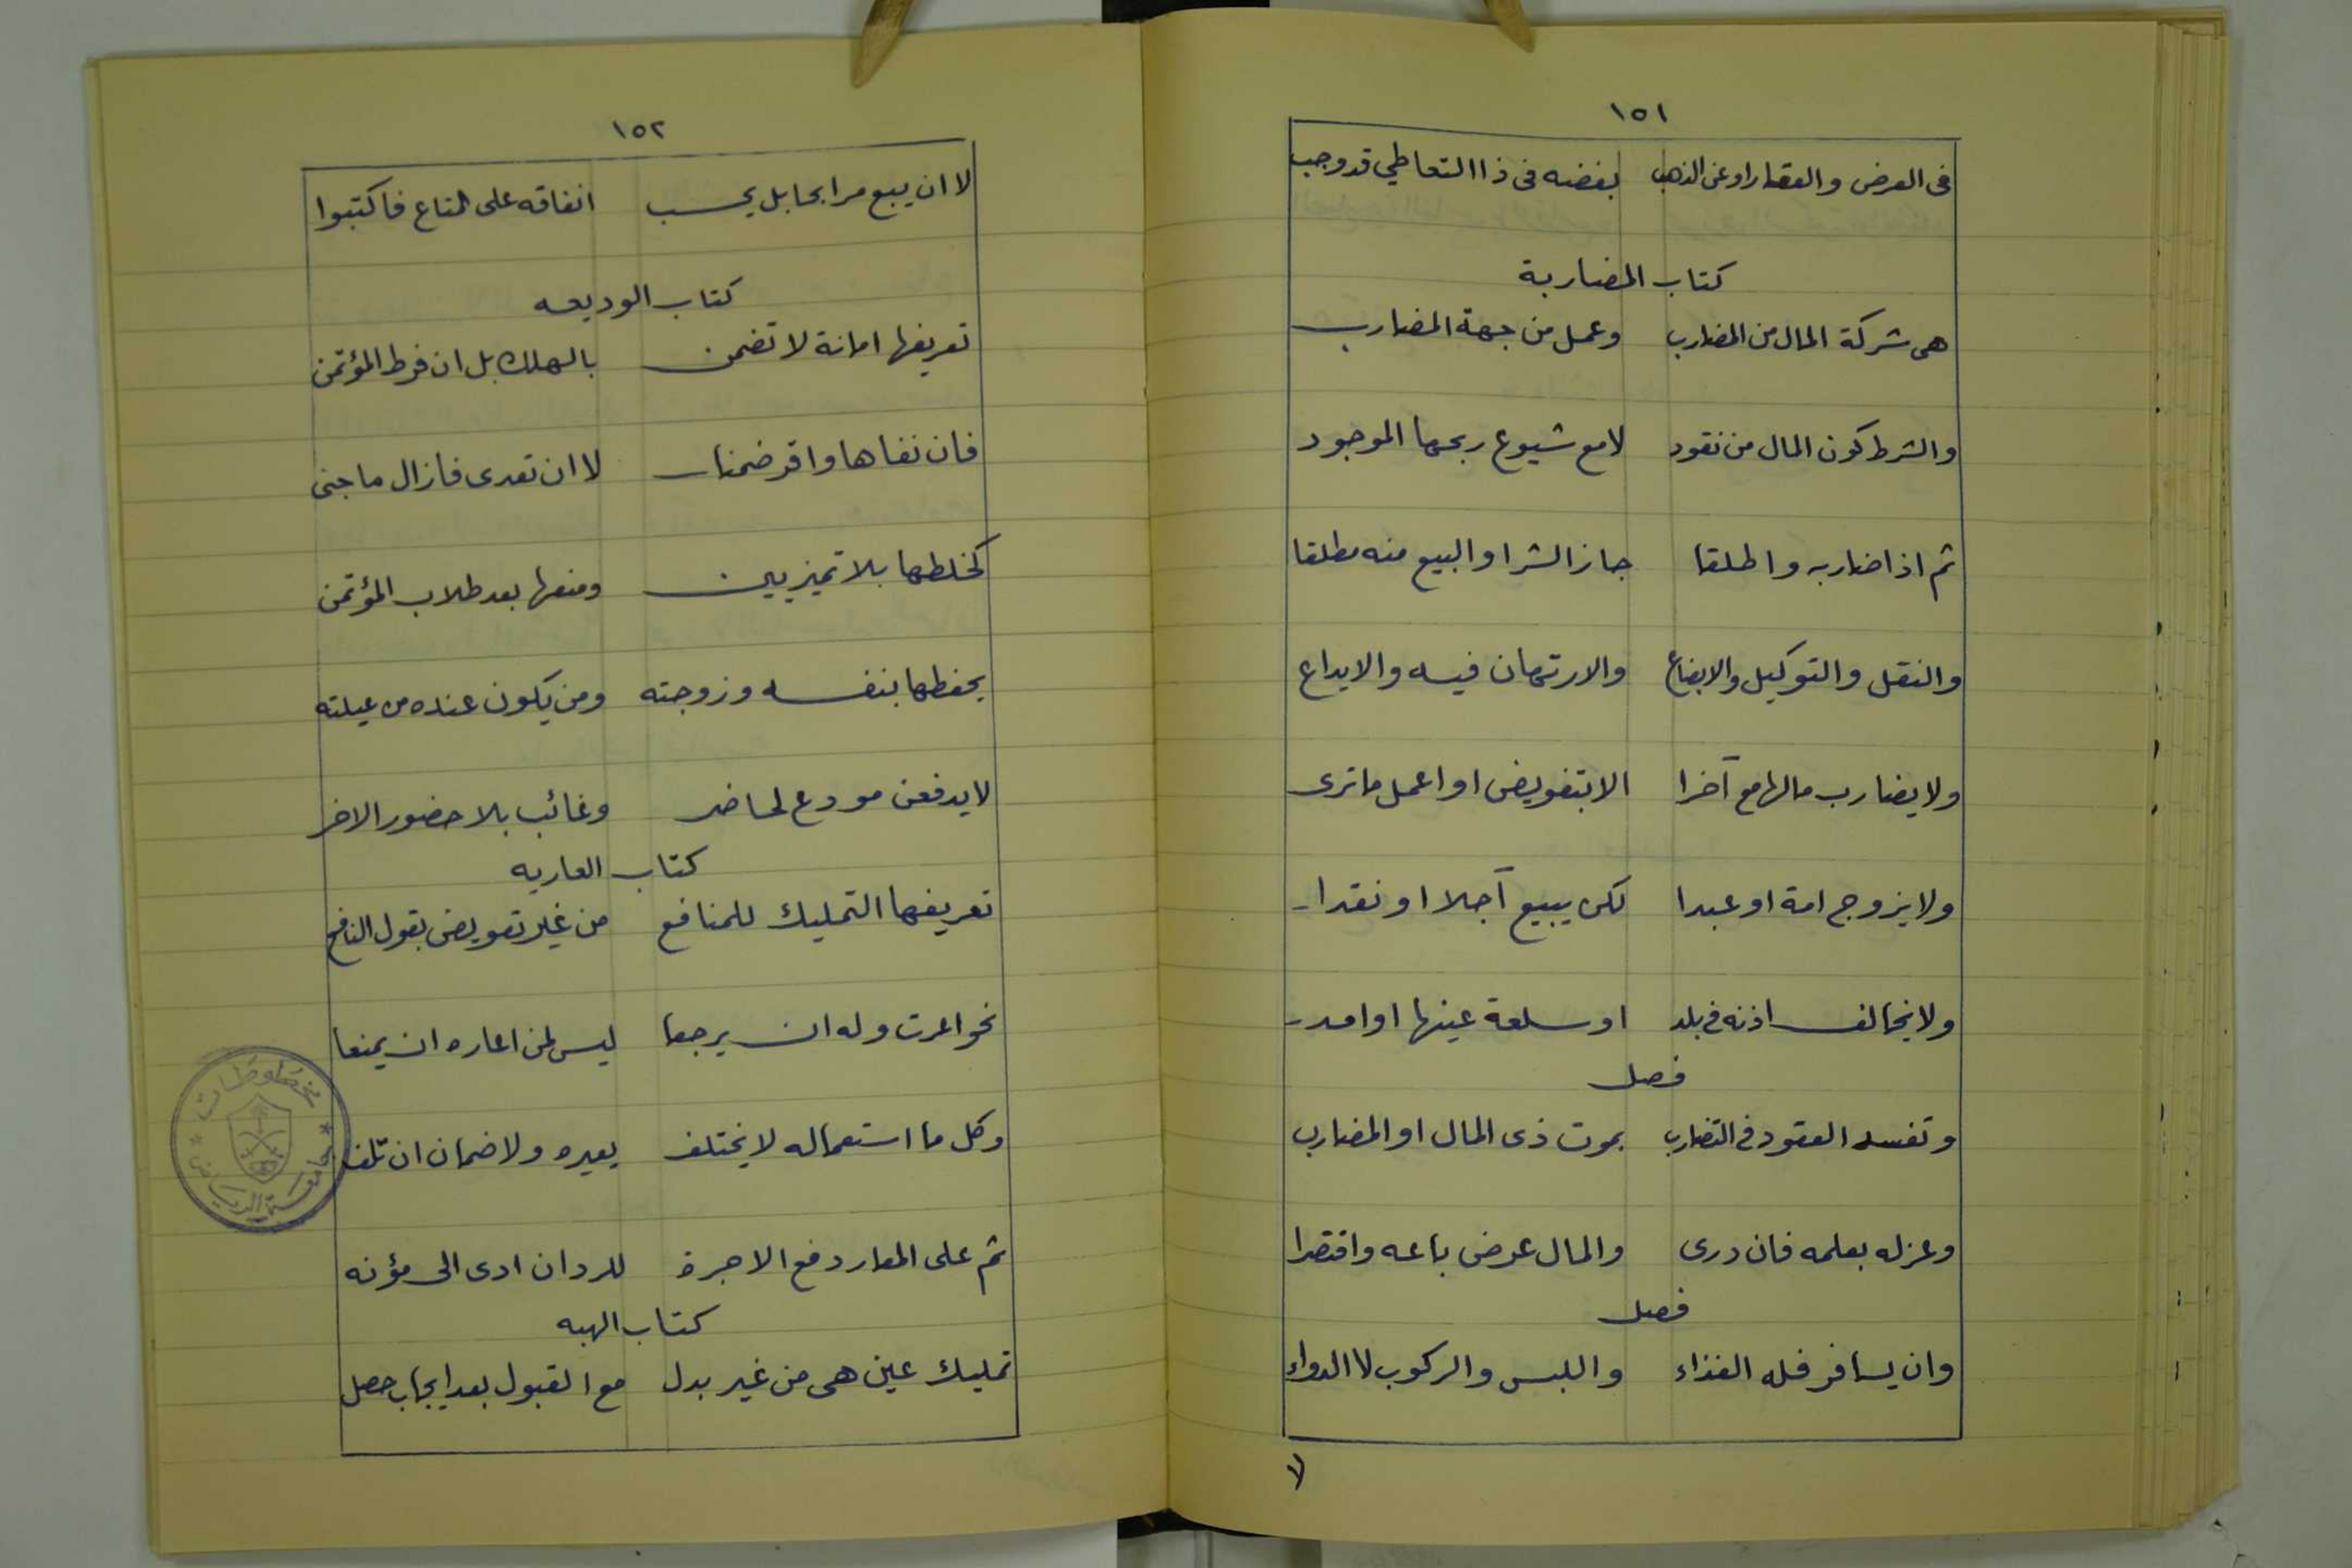 ١٥١
فى العرض والعقار او عن الذهب بفضه فى ذا التعاطي قد وجب
كتاب المضاربة
هى شركة المال من المضارب وعمل من جهة المضارب
والشرط كون المال من نقود لامع شيوع ربحها الموجود
ثم اذا ضاربه واطلقا جاز الشرا والبيع منه مطلقا
والنقل والتوكيل والابضاع والارتهان فيه والايداع
ولا يضارب مالها مع آخرا الا بتفويض او اعمل ما ترى
ولا يزوج امة او عبدا لكن يبيع آجلا او نقدا
ولا يخالف اذنه فى بلد او سلعة عينها او امد
فصل
وتفسد العقود فى التضارب بموت ذى المال او المضارب
وعزله بعلمه فان درى والمال عرض باعه واقتصرا
فصل
وان يسافر فله الغذاء واللبس والركوب لا الدواء
لا
١٥٢
لا ان يبع مرابحا بل يحسب انفاقه على المتاع فاكتبوا
كتاب الوديعه
تعريفها امانة لا تضمن بالهلك بل ان فرط المؤتمن
فان نفاها واقر ضمنا لا ان تعدى فازال ما جنى
كخلطها بلا تميز يبين ومنعها بعد طلاب المؤتمن
يحفظها بنفسه وزوجته ومن يكون عنده من عيلته
لا يدفعن مودع لحاضر وغائب بلا حضور الاخر
كتاب العاريه
تعريفها التمليك للمنافع من غير تعويض بقول النافع
نحو اعرت وله ان يرجعا ليس لمن اعاره ان يمنعا
وكل ما استعماله لا يختلف يعيره ولا ضمان ان تلف
ثم على المعار دفع الاجرة للرد ان ادى الى مؤنه
كتاب الهبه
تمليك عين هى من غير بدل مع القبول بعد ايجاب حصل
مخطوطات
جامعة الرياض